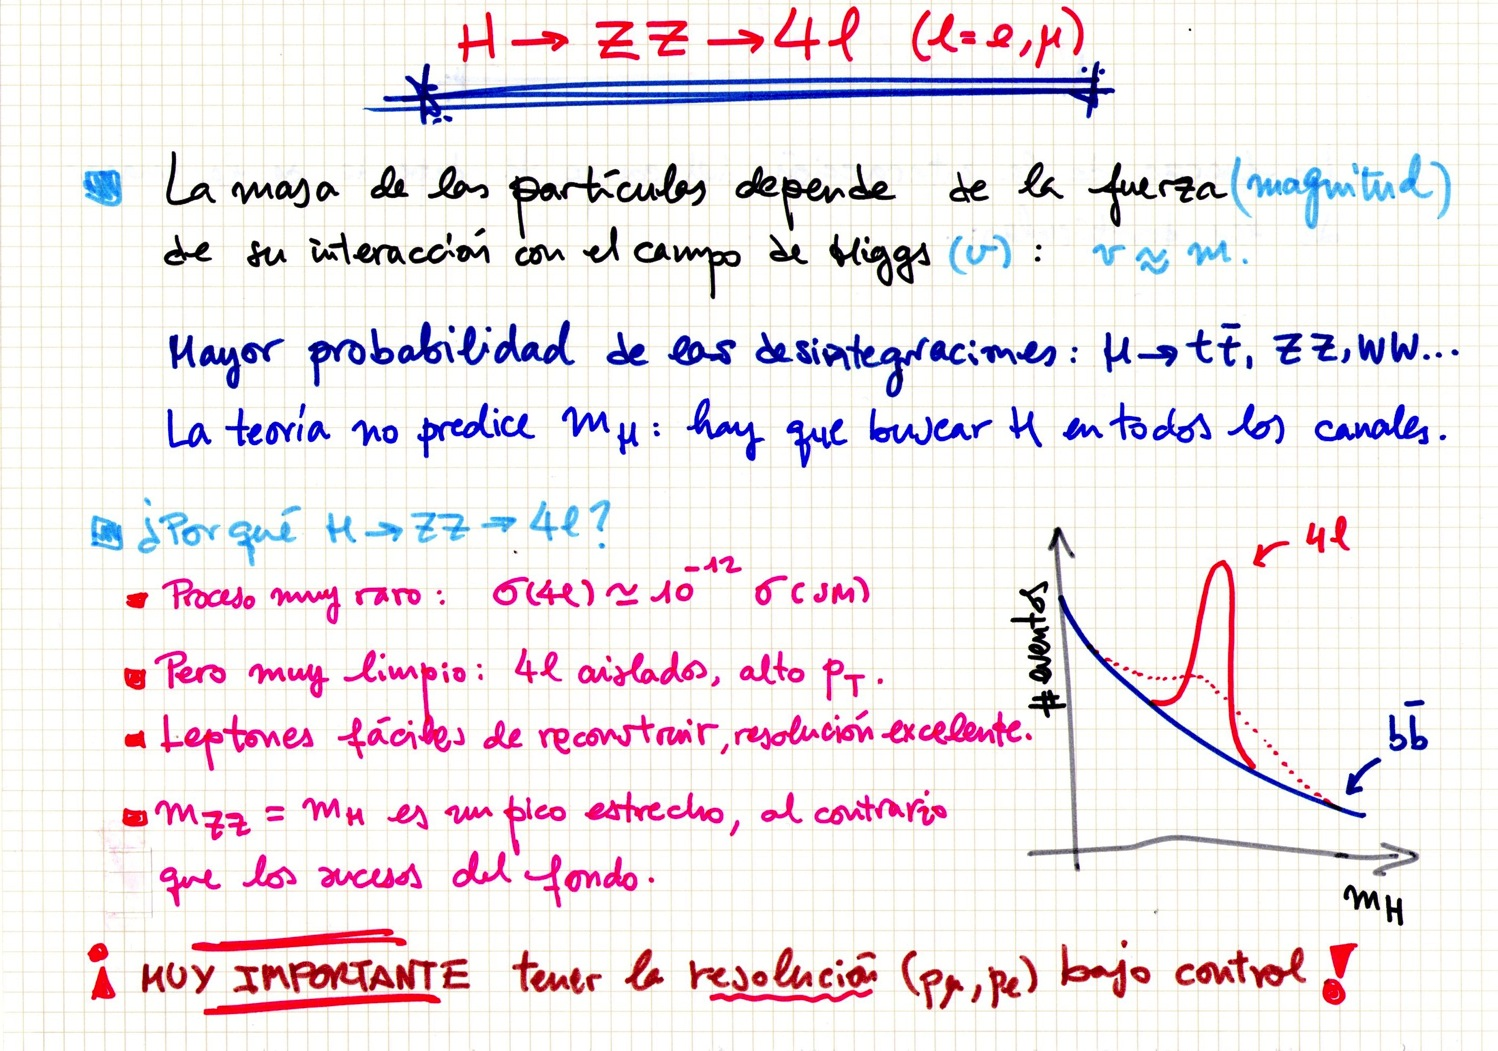 H → ZZ → 4l (l = e, μ)
La masa de las partículas depende de la fuerza (magnitud)
de su interacción con el campo de Higgs (v) : v ≈ m.
Mayor probabilidad de las desintegraciones: H → tt̄, ZZ, WW...
La teoría no predice mH : hay que buscar H en todos los canales.
¿Por qué H → ZZ → 4l?
Proceso muy raro : σ(4l) ≃ 10⁻¹² σ(SM)
Pero muy limpio: 4l aislados, alto pT.
Leptones fáciles de reconstruir, resolución excelente.
mZZ = mH es un pico estrecho, al contrario
que los sucesos del fondo.
# eventos
4l
bb̄
mH
¡MUY IMPORTANTE tener la resolución (pμ, pe) bajo control!